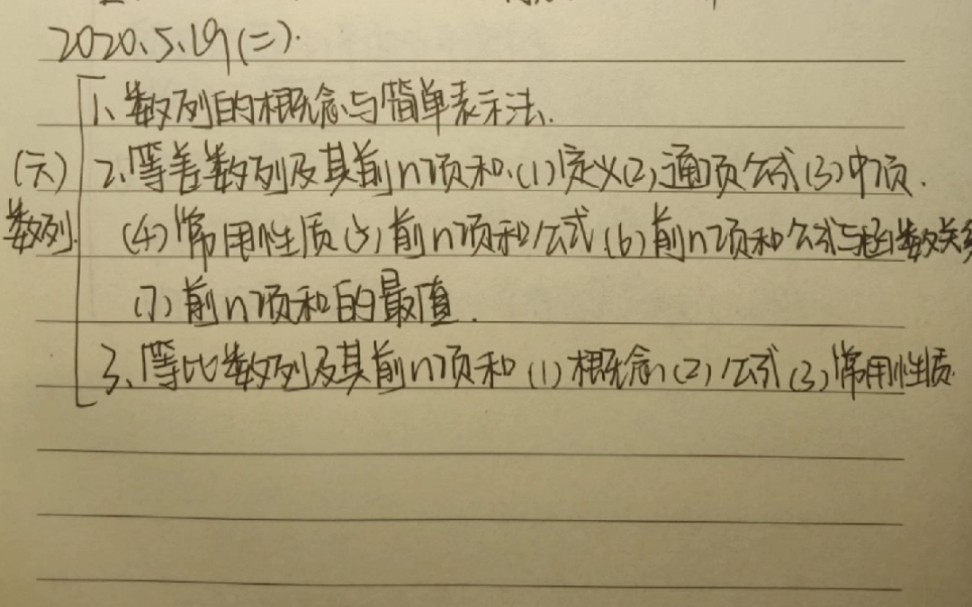 2020.5.19(二).
1、数列的概念与简单表示法.
(六) 2、等差数列及其前n项和.(1)定义(2)通项公式(3)中项.
数列. (4)常用性质(5)前n项和公式(6)前n项和公式与函数关系
(7)前n项和的最值.
3、等比数列及其前n项和(1)概念(2)公式(3)常用性质.